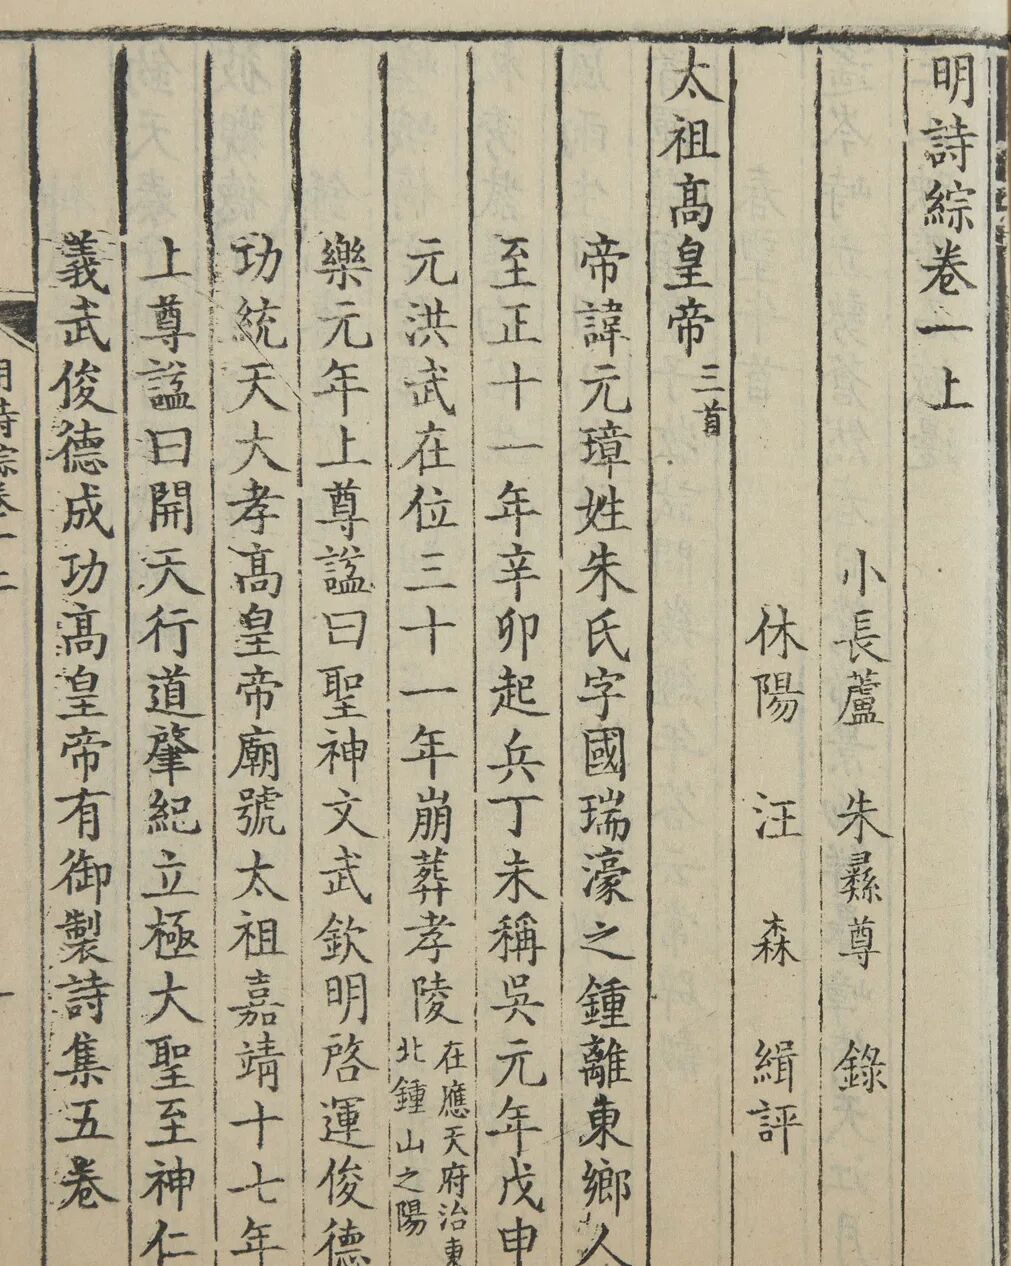 明詩綜卷一上
小長蘆 朱彝尊 錄
休陽 汪森 緝評
太祖高皇帝 三首
帝諱元璋姓朱氏字國瑞濠之鍾離東鄉人
至正十一年辛卯起兵丁未稱吳元年戊申
元洪武在位三十一年崩葬孝陵 在應天府治東北鍾山之陽
樂元年上尊諡曰聖神文武欽明啓運俊德
功統天大孝高皇帝廟號太祖嘉靖十七年
上尊諡曰開天行道肇紀立極大聖至神仁
義武俊德成功高皇帝有御製詩集五卷
明詩綜卷一上
一